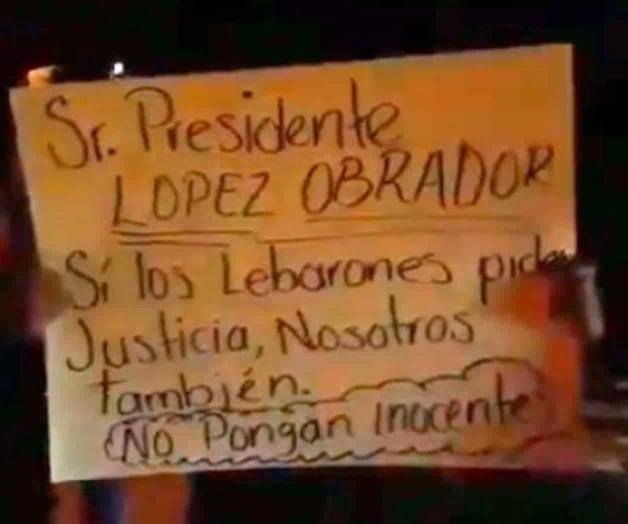 Sr. Presidente
LOPEZ OBRADOR
Sí los Lebarones piden
Justicia, Nosotros
también.
No Pongan inocente